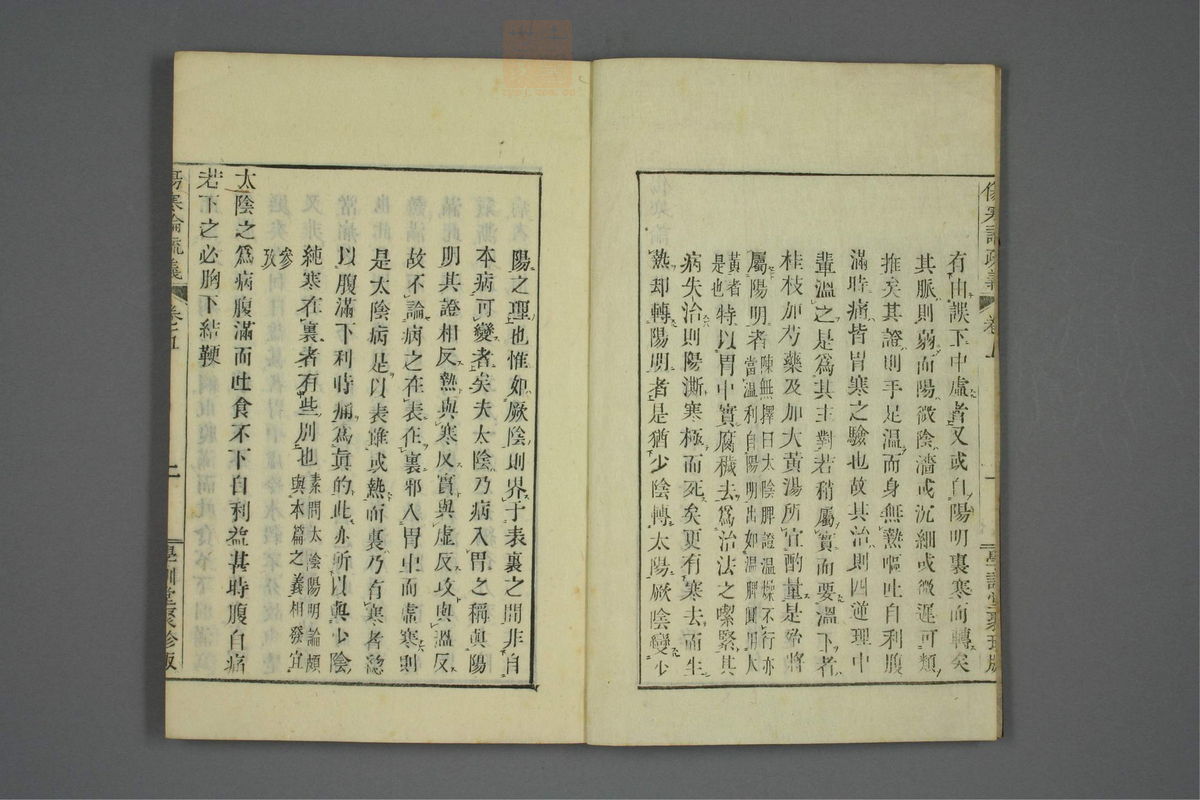 傷寒論疏義 卷 一 學訓堂聚珍版
有由誤下中虛者又或自陽明裏寒而轉矣
其脈則弱而陽微陰濇或沉細或微遲可類
推矣其證則手足溫而身無熱嘔吐自利腹
滿時痛皆胃寒之驗也故其治則四逆理中
輩溫之是爲其主對若稍屬實而要溫下者
桂枝加芍藥及加大黃湯所宜酌量是殆將
屬陽明者陳無擇曰太陰脾證溫燥不行亦當溫利自陽明出如溫脾圓用大
黃者是也特以胃中實腐穢去爲治法之喫緊其
病失治則陽澌寒極而死矣更有寒去而生
熱却轉陽明者是猶少陰轉太陽厥陰變少
陽之理也惟如厥陰則界于表裏之間非自
本病可變者矣夫太陰乃病入胃之稱與陽
明其證相反熱與寒反實與虛反攻與溫反
故不論病之在表在裏邪入胃中而虛寒則
是太陰病是以表雖或熱而裏乃有寒者總
以腹滿下利時痛爲眞的此亦所以與少陰
純寒在裏者有些別也素問太陰陽明論頗與本篇之義相發宜
參攷
太陰之爲病腹滿而吐食不下自利益甚時腹自痛
若下之必胸下結鞕
傷寒論疏義 卷五 二 學訓堂聚珍版